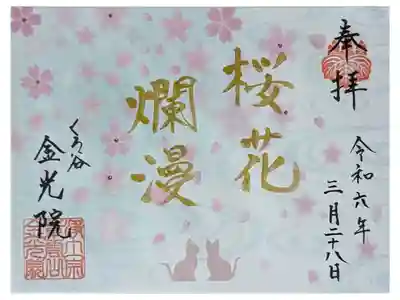 奉拝
令和六年
三月二十八日
桜花
爛漫
くろ谷
金光院